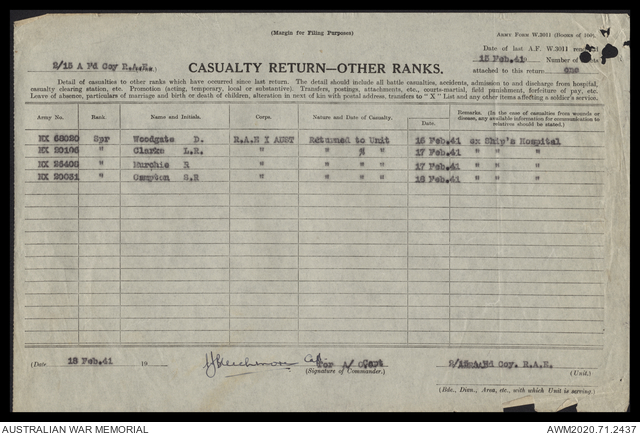 (Margin for Filing Purposes)
ARMY FORM W.3011 (BOOKS OF 100).
Date of last A.F. W.3011 rendered
15 Feb.41
2/15 A Fd Coy R.A.E.
CASUALTY RETURN—OTHER RANKS.
Number of
attached to this return one
Detail of casualties to other ranks which have occurred since last return. The detail should include all battle casualties, accidents, admission to and discharge from hospital,
casualty clearing station, etc. Promotion (acting, temporary, local or substantive). Transfers, postings, attachments, etc., courts-martial, field punishment, forfeiture of pay, etc.
Leave of absence, particulars of marriage and birth or death of children, alteration in next of kin with postal address, transfers to "X" List and any other items affecting a soldier's service.
Army No. Rank. Name and Initials. Corps. Nature and Date of Casualty. Date. Remarks. (In the case of casualties from wounds or disease, any available information for communication to relatives should be stated.)
Spr Woodgate D. R.A.E X AUST Returned to Unit 16 Feb.41 ex Ship's Hospital
" Clarke L.R. " " " 17 Feb.41 " " "
" Murchie R " " " 17 Feb.41 " " "
" S.R " " " 18 Feb.41 " " "
(Date 18 Feb.41 19
for A/
(Signature of Commander.)
Coy. R.A.E.
(Unit.)
(Bde., Divn., Area, etc., with which Unit is serving.)
AUSTRALIAN WAR MEMORIAL
AWM2020.71.2437